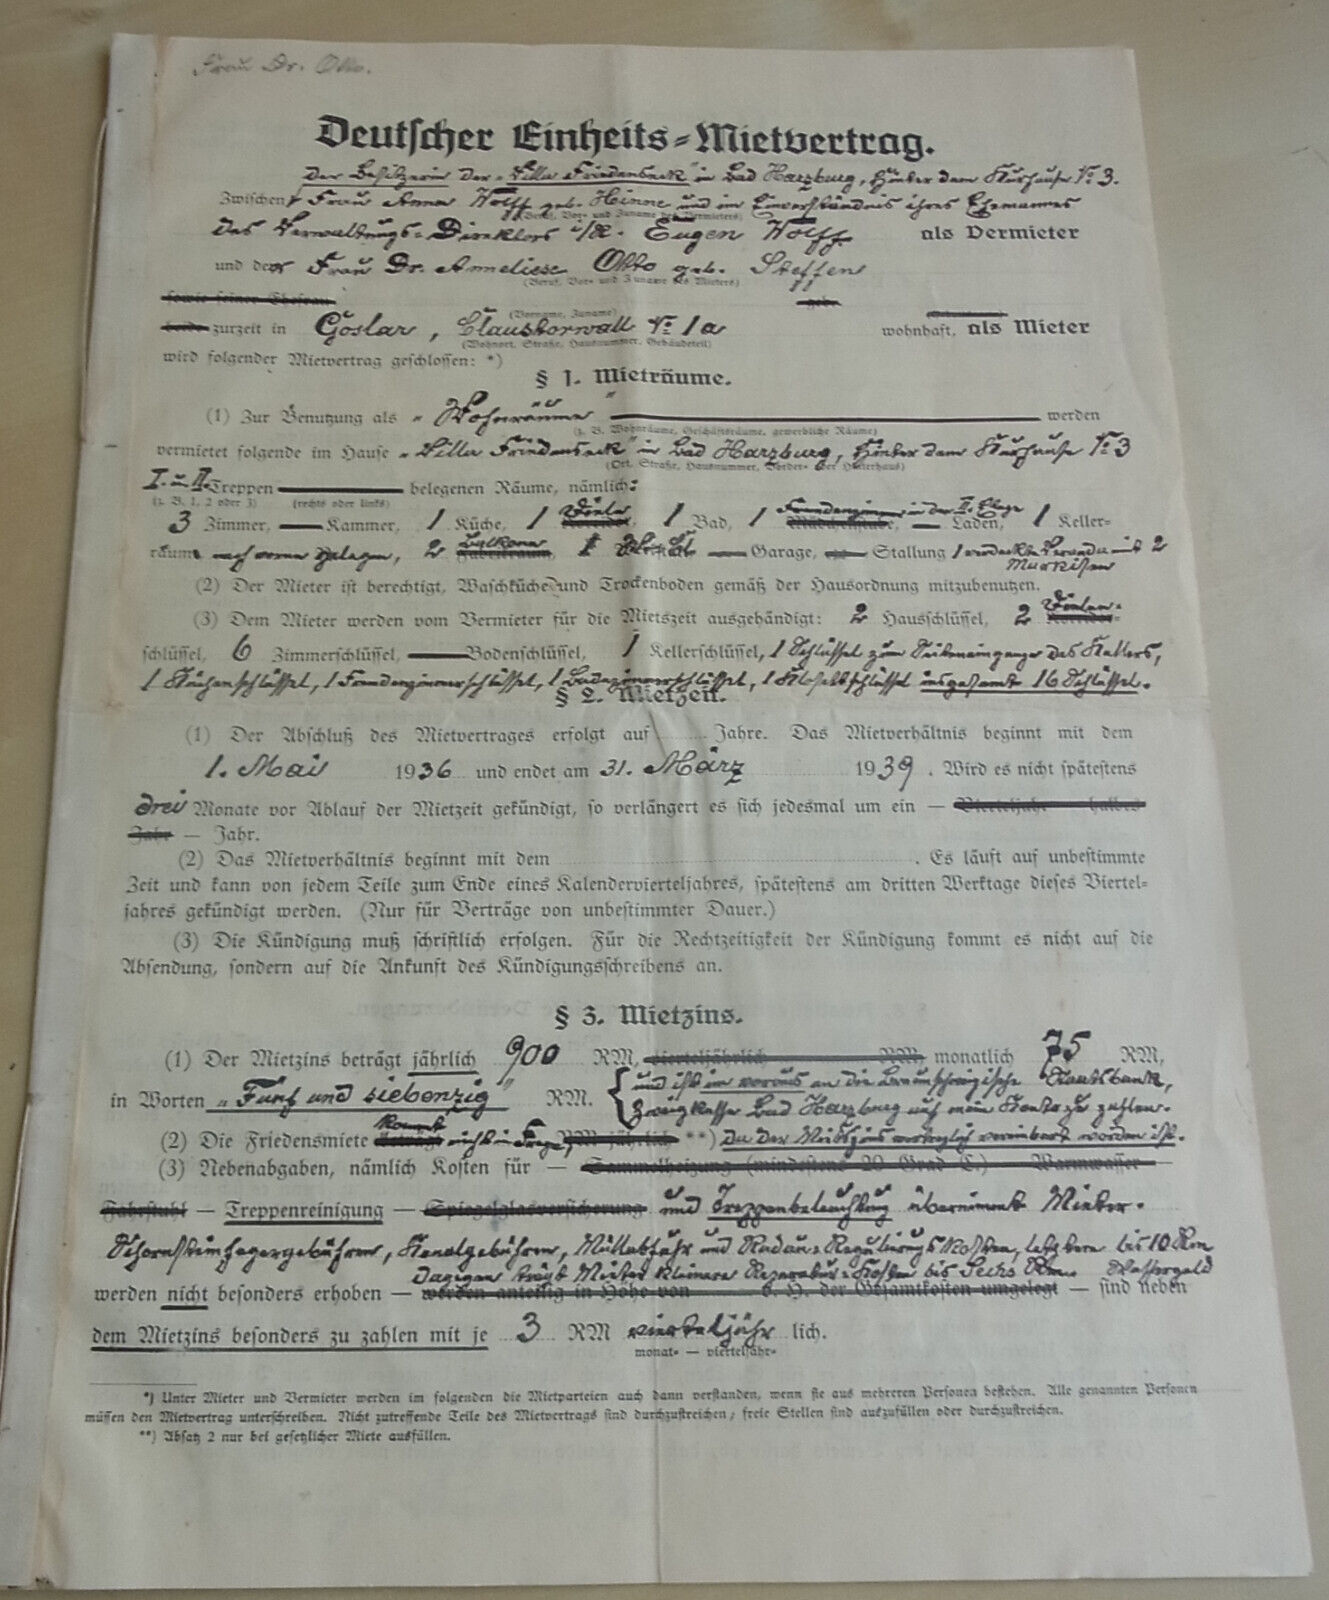 Frau Dr. Otto.
Deutscher Einheits-Mietvertrag.
Der Besitzerin der "Villa Friedenseck" in Bad Harzburg, Hinter dem Kurhause No 3.
Zwischen Frau Anna Wolff geb. Hinne und im Einverständnis ihres Ehemannes
(Beruf, Vor- und Zuname des Vermieters)
des Verwaltungs-Direktors i/R. Eugen Wolff als Vermieter
und der Frau Dr. Anneliese Otto geb. Steffen
(Beruf, Vor- und Zuname des Mieters)
sowie seiner Ehefrau geb.
(Vorname, Zuname)
beide zurzeit in Goslar, Claustorwall No 1a wohnhaft, als Mieter
(Wohnort, Straße, Hausnummer, Gebäudeteil)
wird folgender Mietvertrag geschlossen: *)
§ 1. Mieträume.
(1) Zur Benutzung als "Wohnräume" werden
(z. B. Wohnräume, Geschäftsräume, gewerbliche Räume)
vermietet folgende im Hause "Villa Friedenseck" in Bad Harzburg, Hinter dem Kurhause No 3
(Ort, Straße, Hausnummer, Vorder- oder Hinterhaus)
I. u II. Treppen belegenen Räume, nämlich:
(z. B. 1, 2 oder 3) (rechts oder links)
3 Zimmer, Kammer, 1 Küche, 1 Diele, 1 Bad, 1 Fremdenzimmer in der II. Etage Mädchenstube, Laden, 1 Keller-
räume nach vorne gelegen, 2 Balkone Fabrikraum, 1 Garage, Stallung 1 verdeckte Veranda mit 2
Markisen
(2) Der Mieter ist berechtigt, Waschküche und Trockenboden gemäß der Hausordnung mitzubenutzen.
(3) Dem Mieter werden vom Vermieter für die Mietszeit ausgehändigt: 2 Hausschlüssel, 2 Dielen-
schlüssel, 6 Zimmerschlüssel, Bodenschlüssel, 1 Kellerschlüssel, 1 Schlüssel zum Seiteneingange des Kellers,
1 Küchenschlüssel, 1 Fremdenzimmerschlüssel, 1 Badezimmerschlüssel, 1 Klosettschlüssel insgesamt 16 Schlüssel.
§ 2. Mietzeit.
(1) Der Abschluß des Mietvertrages erfolgt auf Jahre. Das Mietverhältnis beginnt mit dem
1. Mai 1936 und endet am 31. März 1939. Wird es nicht spätestens
drei Monate vor Ablauf der Mietzeit gekündigt, so verlängert es sich jedesmal um ein — Vierteljahr — halbes
Jahr — Jahr.
(2) Das Mietverhältnis beginnt mit dem . Es läuft auf unbestimmte
Zeit und kann von jedem Teile zum Ende eines Kalendervierteljahres, spätestens am dritten Werktage dieses Viertel-
jahres gekündigt werden. (Nur für Verträge von unbestimmter Dauer.)
(3) Die Kündigung muß schriftlich erfolgen. Für die Rechtzeitigkeit der Kündigung kommt es nicht auf die
Absendung, sondern auf die Ankunft des Kündigungsschreibens an.
§ 3. Mietzins.
(1) Der Mietzins beträgt jährlich 900 RM, vierteljährlich RM, monatlich 75 RM,
in Worten "Fünf und siebenzig" RM. { und ist im voraus an die Braunschweigische Staatsbank,
Zweigkasse Bad Harzburg auf mein Konto zu zahlen.
(2) Die Friedensmiete beträgt kommt nicht in Frage, RM jährlich **) da der Mietszins vertraglich vereinbart worden ist.
(3) Nebenabgaben, nämlich Kosten für — Sammelheizung (mindestens 20 Grad C.) — Warmwasser —
Fahrstuhl — Treppenreinigung — Spiegelglasversicherung und Treppenbeleuchtung übernimmt Mieter.
Schornsteinfegergebühren, Kanalgebühren, Müllabfuhr und Radau-Regulierungskosten, letztere bis 10 Rm
Dagegen trägt Mieter kleinere Reparatur-Kosten bis Sechs Rm. Wassergeld
werden nicht besonders erhoben — werden anteilig in Höhe von v. H. der Gesamtkosten umgelegt — sind neben
dem Mietzins besonders zu zahlen mit je 3 RM vierteljähr lich.
monat- — vierteljähr-
*) Unter Mieter und Vermieter werden im folgenden die Mietparteien auch dann verstanden, wenn sie aus mehreren Personen bestehen. Alle genannten Personen
müssen den Mietvertrag unterschreiben. Nicht zutreffende Teile des Mietvertrags sind durchzustreichen; freie Stellen sind auszufüllen oder durchzustreichen.
**) Absatz 2 nur bei gesetzlicher Miete ausfüllen.